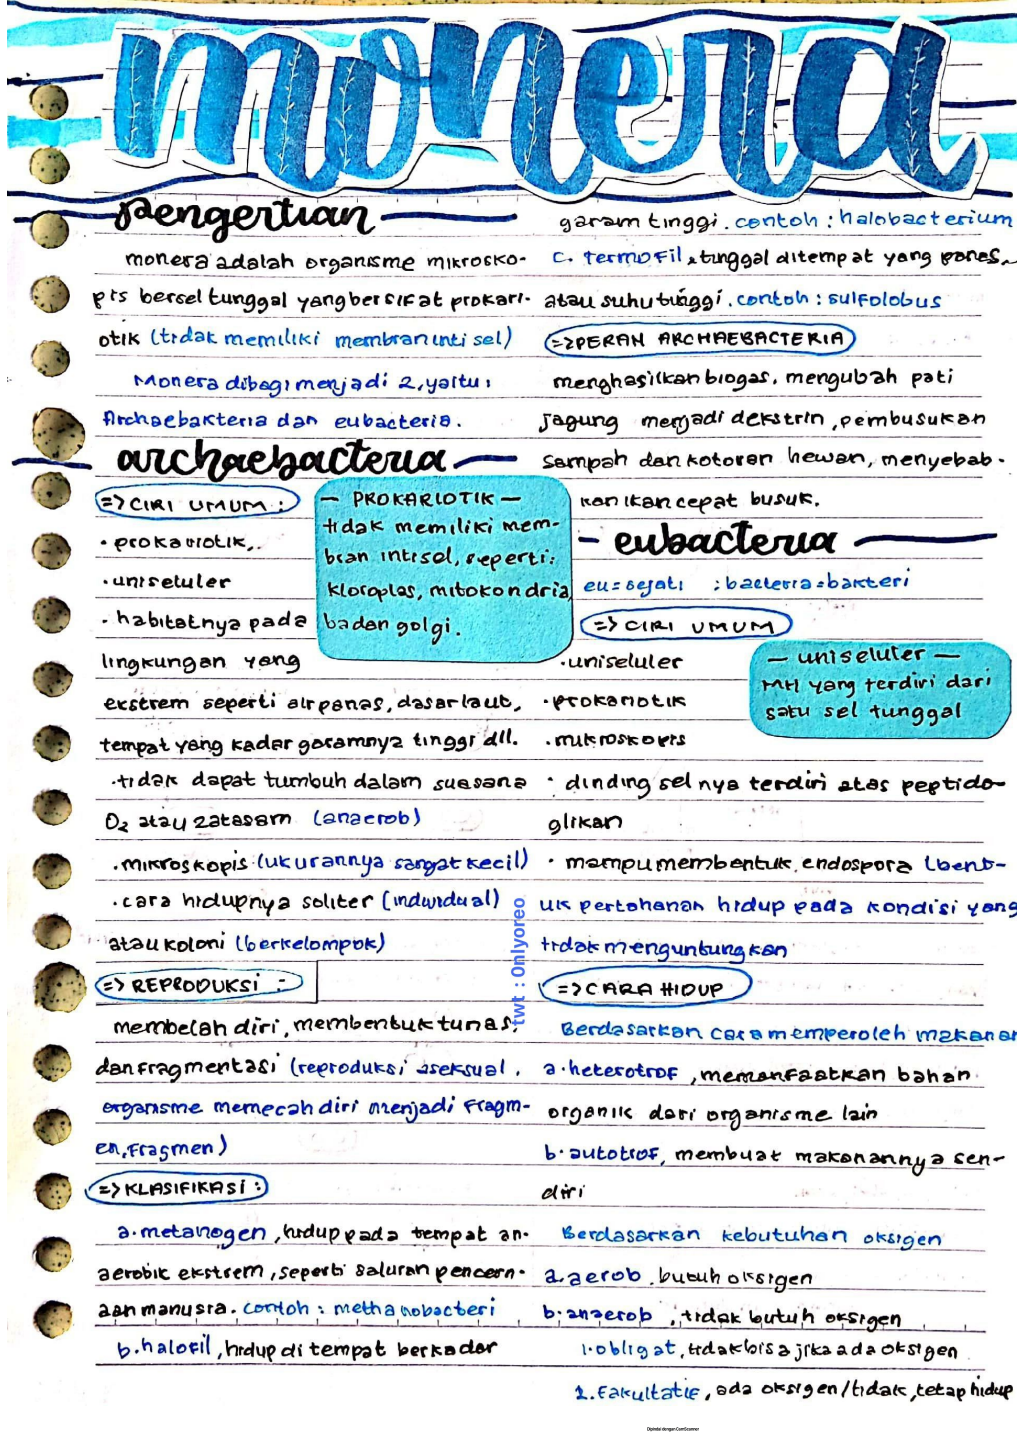 monera
pengertian
monera adalah organisme mikrosko-
pis bersel tunggal yang bersifat prokari-
otik (tidak memiliki membran inti sel)
Monera dibagi menjadi 2, yaitu :
Archaebakteria dan eubacteria.
archaebacteria
=> CIRI UMUM :
· prokariotik,
· uniseluler
· habitatnya pada
lingkungan yang
ekstrem seperti air panas, dasar laut,
tempat yang kadar garamnya tinggi dll.
· tidak dapat tumbuh dalam suasana
O₂ atau zat asam (anaerob)
· mikroskopis (ukurannya sangat kecil)
· cara hidupnya soliter (individual)
atau koloni (berkelompok)
— PROKARIOTIK —
tidak memiliki mem-
bran inti sel, seperti:
kloroplas, mitokondria,
badan golgi.
=> REPRODUKSI :
membelah diri, membentuk tunas,
dan fragmentasi (reproduksi aseksual,
organisme memecah diri menjadi fragm-
en, fragmen)
=> KLASIFIKASI :
a. metanogen, hidup pada tempat an-
aerobik ekstrem, seperti saluran pencern-
aan manusia. contoh : methanobacteri
b. halofil, hidup di tempat berkadar
garam tinggi. contoh : halobacterium
c. termofil, tinggal ditempat yang panas
atau suhu tinggi. contoh : sulfolobus
=> PERAN ARCHAEBACTERIA
menghasilkan biogas, mengubah pati
jagung menjadi dekstrin, pembusukan
sampah dan kotoran hewan, menyebab-
kan ikan cepat busuk.
eubacteria
eu = sejati ; bacteria = bakteri
=> CIRI UMUM
· uniseluler
· prokariotik
· mikroskopis
· dinding selnya terdiri atas peptido-
glikan
· mampu membentuk endospora (bent-
uk pertahanan hidup pada kondisi yang
tidak menguntungkan
— uniseluler —
MH yang terdiri dari
satu sel tunggal
=> CARA HIDUP
Berdasarkan cara memperoleh makanan
a. heterotrof, memanfaatkan bahan
organik dari organisme lain
b. autotrof, membuat makanannya sen-
diri
Berdasarkan kebutuhan oksigen
a. aerob, butuh oksigen
b. anaerob, tidak butuh oksigen
1. obligat, tidak bisa jika ada oksigen
2. Fakultatif, ada oksigen/tidak, tetap hidup
twt : 0nlyoreo
Dipindai dengan CamScanner